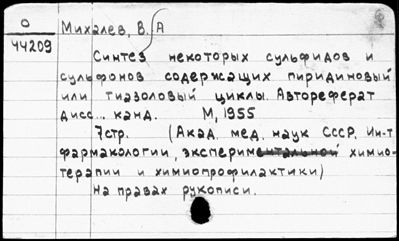 О
44209
Михалев, В. А
Синтез некоторых сульфидов и
сульфонов содержащих пиридиновый
или тиазоловый циклы. Автореферат
дисс... канд. М, 1955
7стр. (Акад. мед. наук СССР. Ин-т
фармакологии, экспериментальной химио-
терапии и химиопрофилактики)
На правах рукописи.